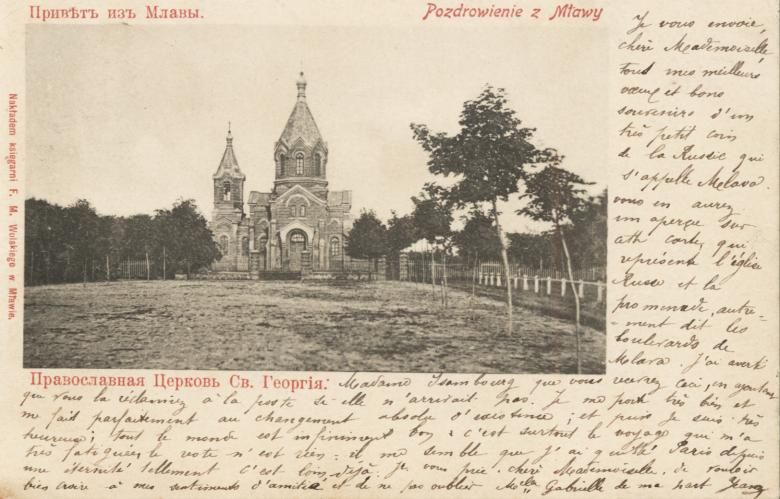 Привѣтъ изъ Млавы.
Pozdrowienie z Mławy
Nakładem księgarni F. M. Wolskiego w Mławie.
Православная Церковь Св. Георгія.
Je vous envoie,
chère Mademoiselle,
tous mes meilleurs
vœux et bons
souvenirs d'un
très petit coin
de la Russie qui
s'appelle Mlava.
vous en aurez
un aperçu sur
carte, qui
représente l'église
Russe et la
promenade, autre-
-ment dit les
boulevards de
Mlava. J'ai averti
Madame Isambourg que vous recevrez ceci, en
que vous la réclamiez à la poste si elle n'arrivait pas. Je me porte très bien et
me fait parfaitement au changement absolu d'existence; et puis je suis très
heureuse; tout le monde est infiniment bon, c'est surtout le voyage qui m'a
très fatiguée, le reste n'est rien: il me semble que j'ai quitté Paris depuis
une éternité tellement c'est loin déjà. Je vous prie, chère Mademoiselle, de vouloir
bien croire à mes sentiments d'amitié et de ne pas oublier Gabrielle de ma part